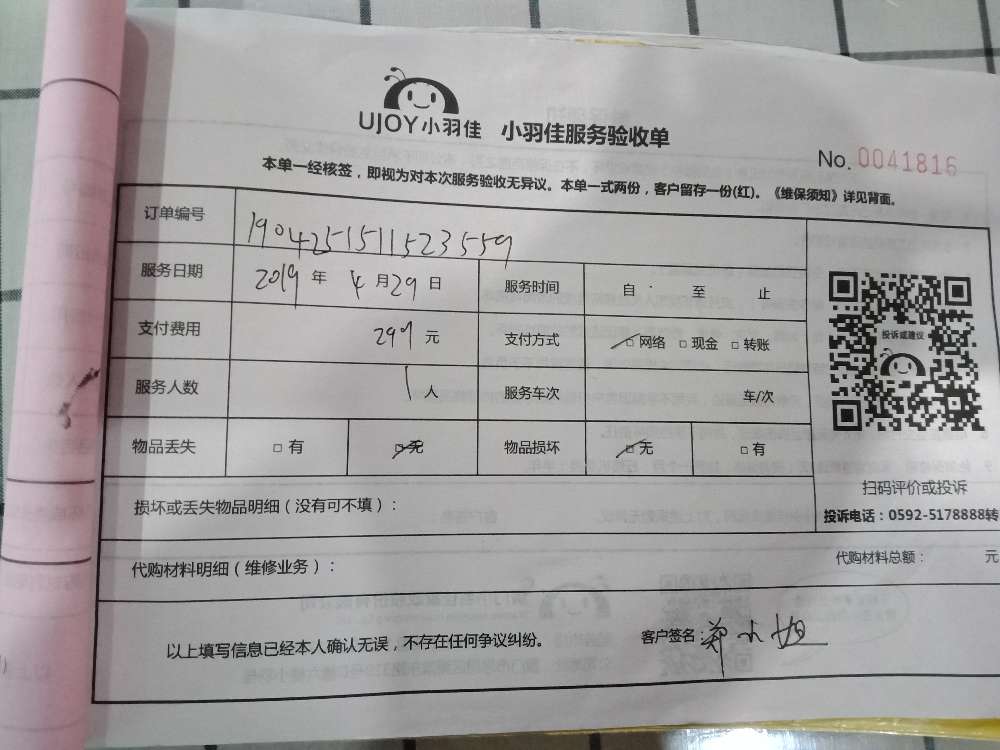 UJOY小羽佳 小羽佳服务验收单
No. 0041816
本单一经核签，即视为对本次服务验收无异议。本单一式两份，客户留存一份(红)。《维保须知》详见背面。
订单编号 1904251511523559
服务日期 2019 年 4 月 29 日 服务时间 自 至 止
支付费用 299 元 支付方式 □网络 □现金 □转账
服务人数 1 人 服务车次 车/次
物品丢失 □有 □无 物品损坏 □无 □有
投诉或建议
扫码评价或投诉
投诉电话：0592-5178888转
损坏或丢失物品明细（没有可不填）：
代购材料明细（维修业务）： 代购材料总额： 元
以上填写信息已经本人确认无误，不存在任何争议纠纷。 客户签名：郑小姐